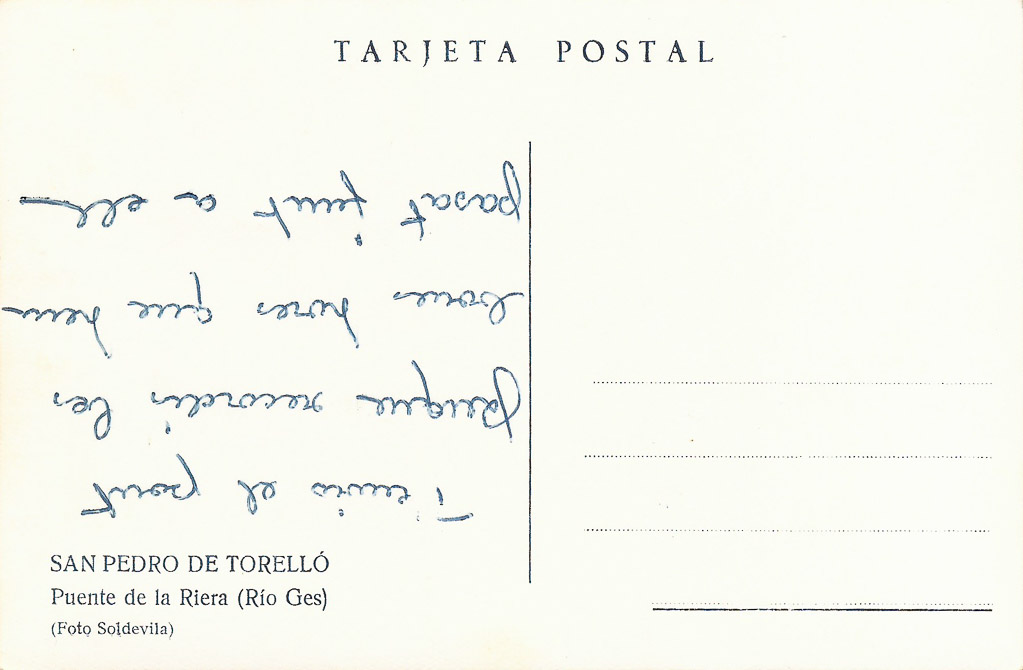 TARJETA POSTAL
T'envio el pont
perque recordis les
bones hores que hem
pasat junt a ell
SAN PEDRO DE TORELLÓ
Puente de la Riera (Río Ges)
(Foto Soldevila)